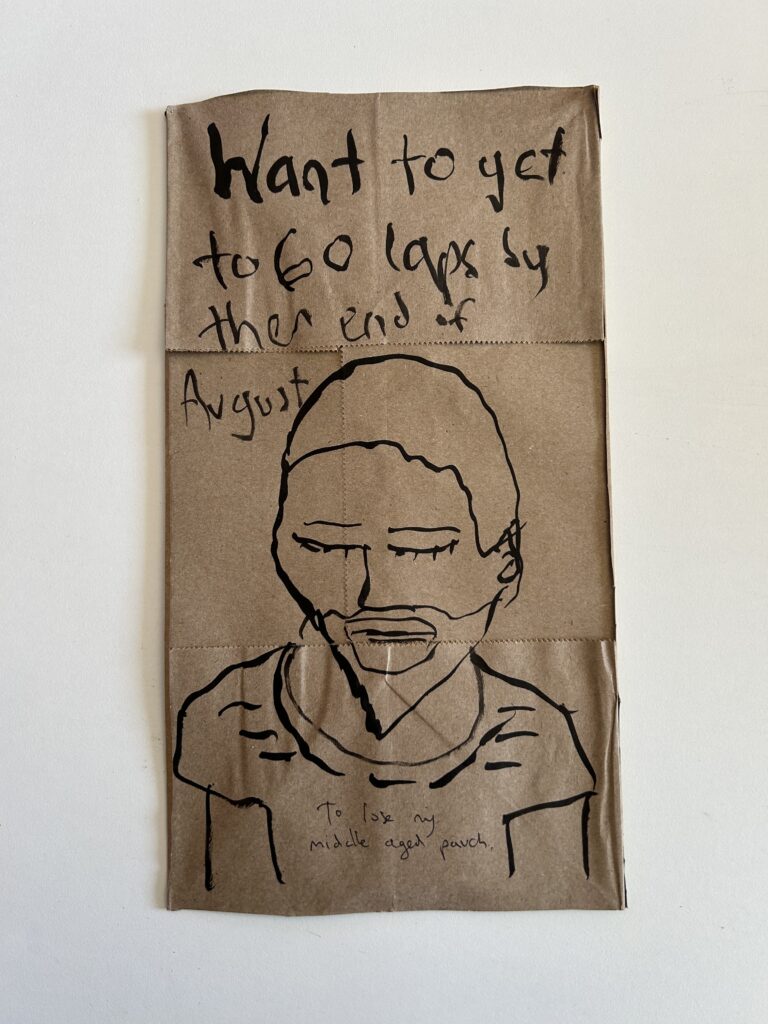 Want to get
to 60 laps by
then end of
August
To lose my
middle aged pauch.